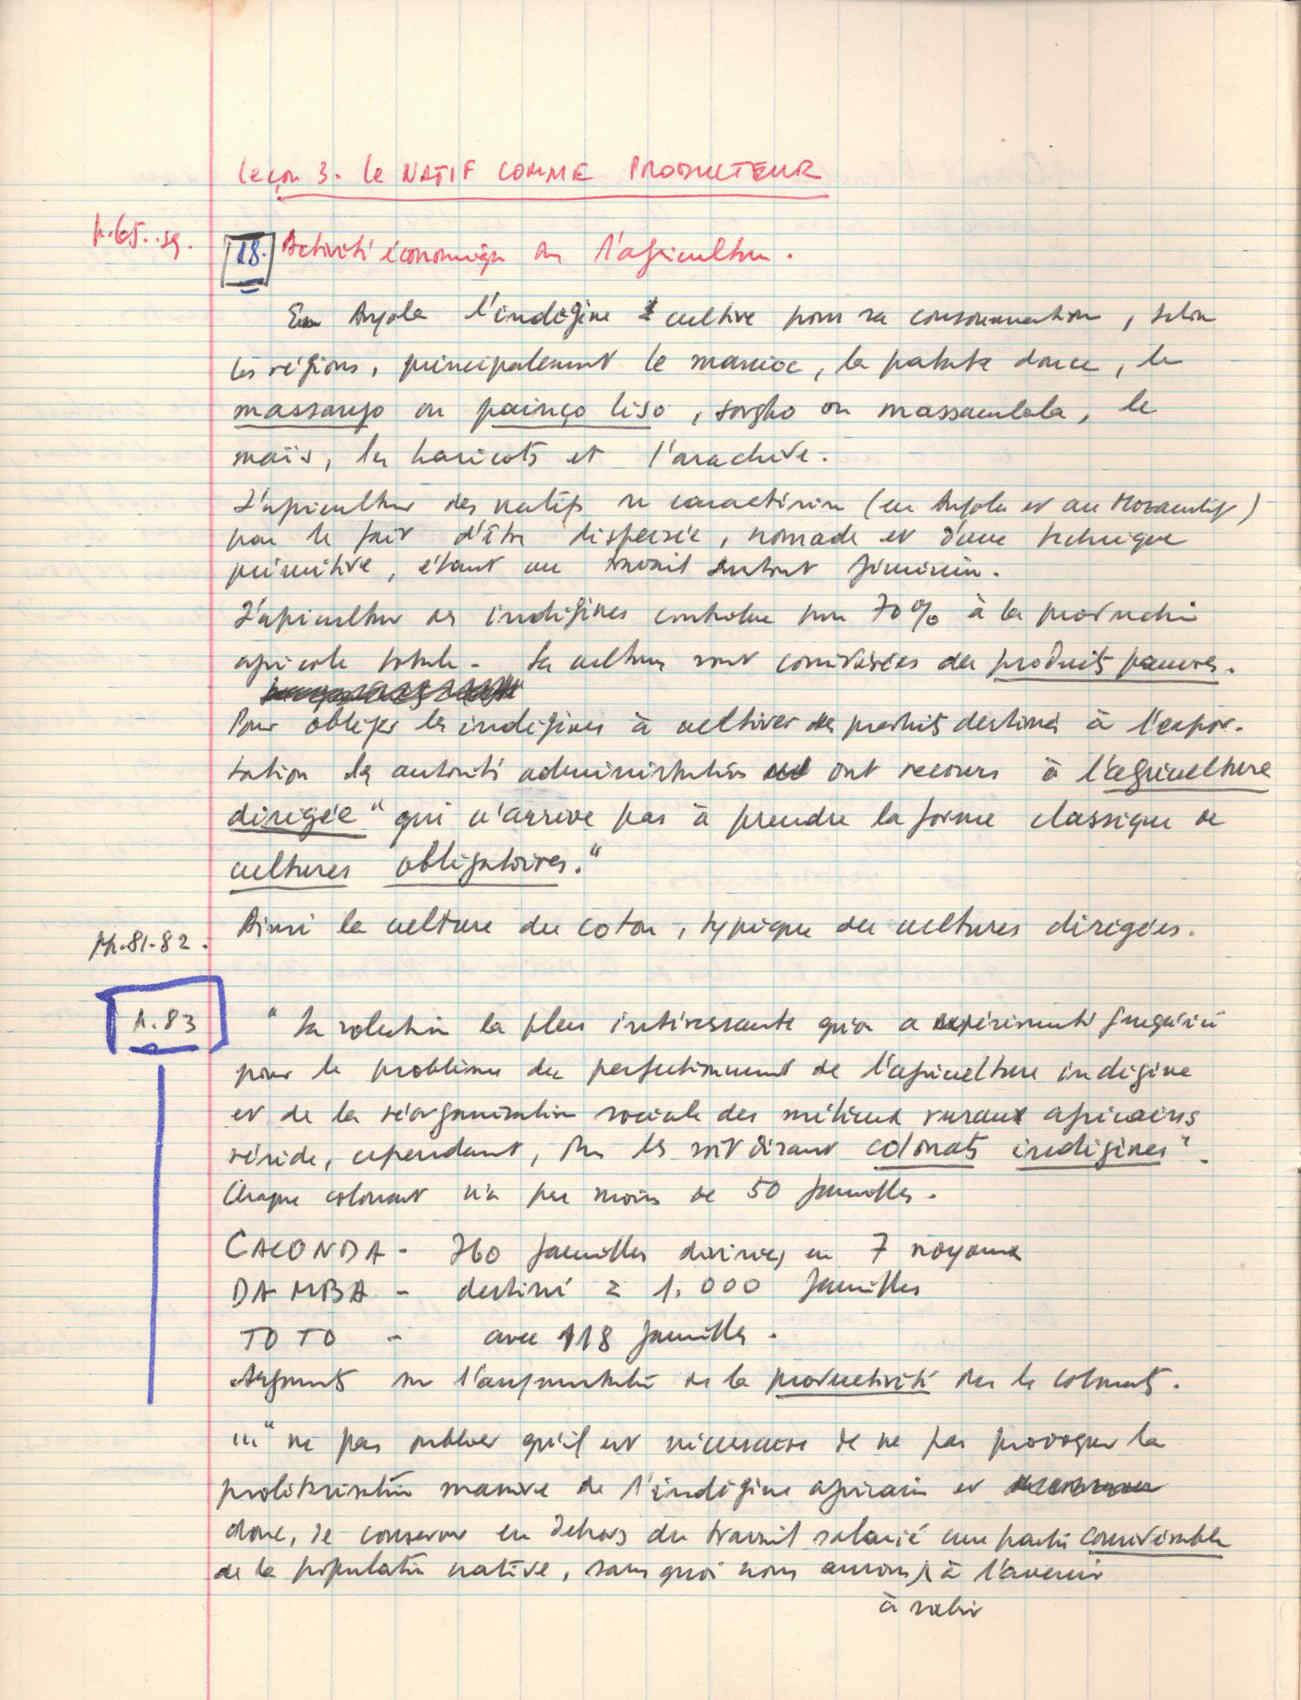 Leçon 3. Le NATIF COMME PRODUCTEUR
p. 65. sq.
18. Activité économique de l'agriculture.
En Angola l'indigène cultive pour sa consommation, selon
les régions, principalement le manioc, la patate douce, le
massango ou painço liso, sorgho ou massambala, le
maïs, les haricots et l'arachide.
L'agriculture des natifs se caractérise (en Angola et au Mozambique)
par le fait d'être dispersée, nomade et d'une technique
primitive, étant un travail surtout féminin.
L'agriculture des indigènes contribue pour 70% à la production
agricole totale. Les cultures sont considérées des produits pauvres.
Pour obliger les indigènes à cultiver des produits destinés à l'expor-
tation les autorités administratives ont recours à l'agriculture
dirigée "qui n'arrive pas à prendre la forme classique de
cultures obligatoires."
pp. 81-82.
Ainsi la culture du coton, typique des cultures dirigées.
p. 83
"La solution la plus intéressante qu'on a expérimenté jusqu'ici
pour le problème du perfectionnement de l'agriculture indigène
et de la réorganisation sociale des milieux ruraux africains
réside, cependant, dans les soit disant colonats indigènes".
Chaque colonat n'a pas moins de 50 familles.
CACONDA - 760 familles divisées en 7 noyaux
DAMBA - destiné à 1.000 familles
TOTO - avec 118 familles.
Arguments sur l'augmentation de la productivité des colonats.
..."ne pas oublier qu'il est nécessaire de ne pas provoquer la
prolétarisation massive de l'indigène africain et
donc, de conserver en dehors du travail salarié une partie considérable
de la population native, sans quoi nous aurons à l'avenir
à subir